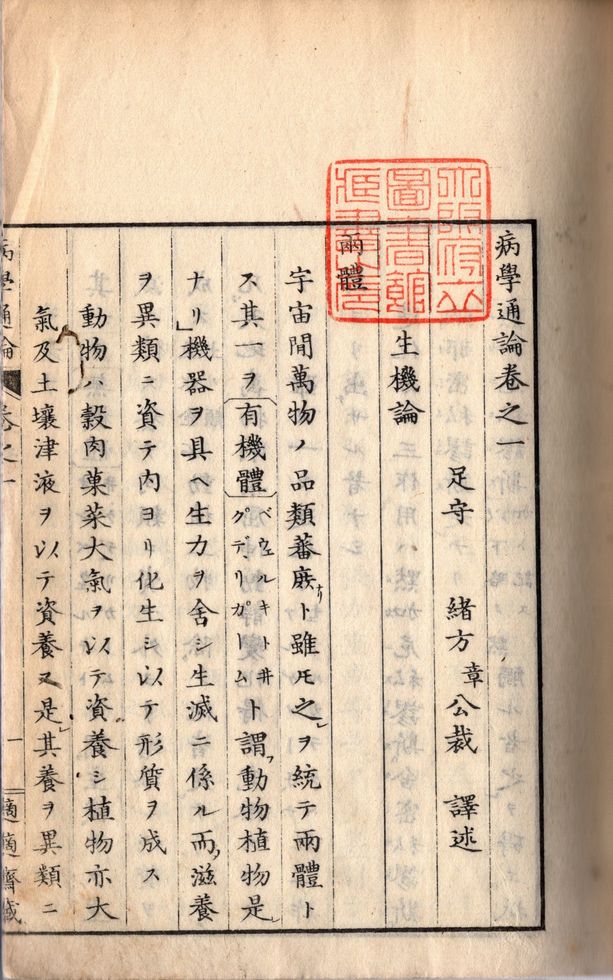 病學通論卷之一
足守 緒方章公裁 譯述
生機論
兩體
宇宙間萬物ノ品類蕃廡ナリト雖モ之ヲ統テ兩體ト
ス其一ヲ有機體ベウェルキトゥイグデ、リガーム卜謂動物植物是
ナリ機器ヲ具ヘ生力ヲ舍シ生滅ニ係ル而滋養
ヲ異類ニ資テ内ヨリ化生シ以テ形質ヲ成ス
動物ハ穀肉菓菜大氣ヲ以テ資養シ植物亦大
氣及土壤津液ヲ以テ資養ス是其養ヲ異類ニ
病學通論 卷之一 一 適適齋藏
大阪府立圖書館藏書之印